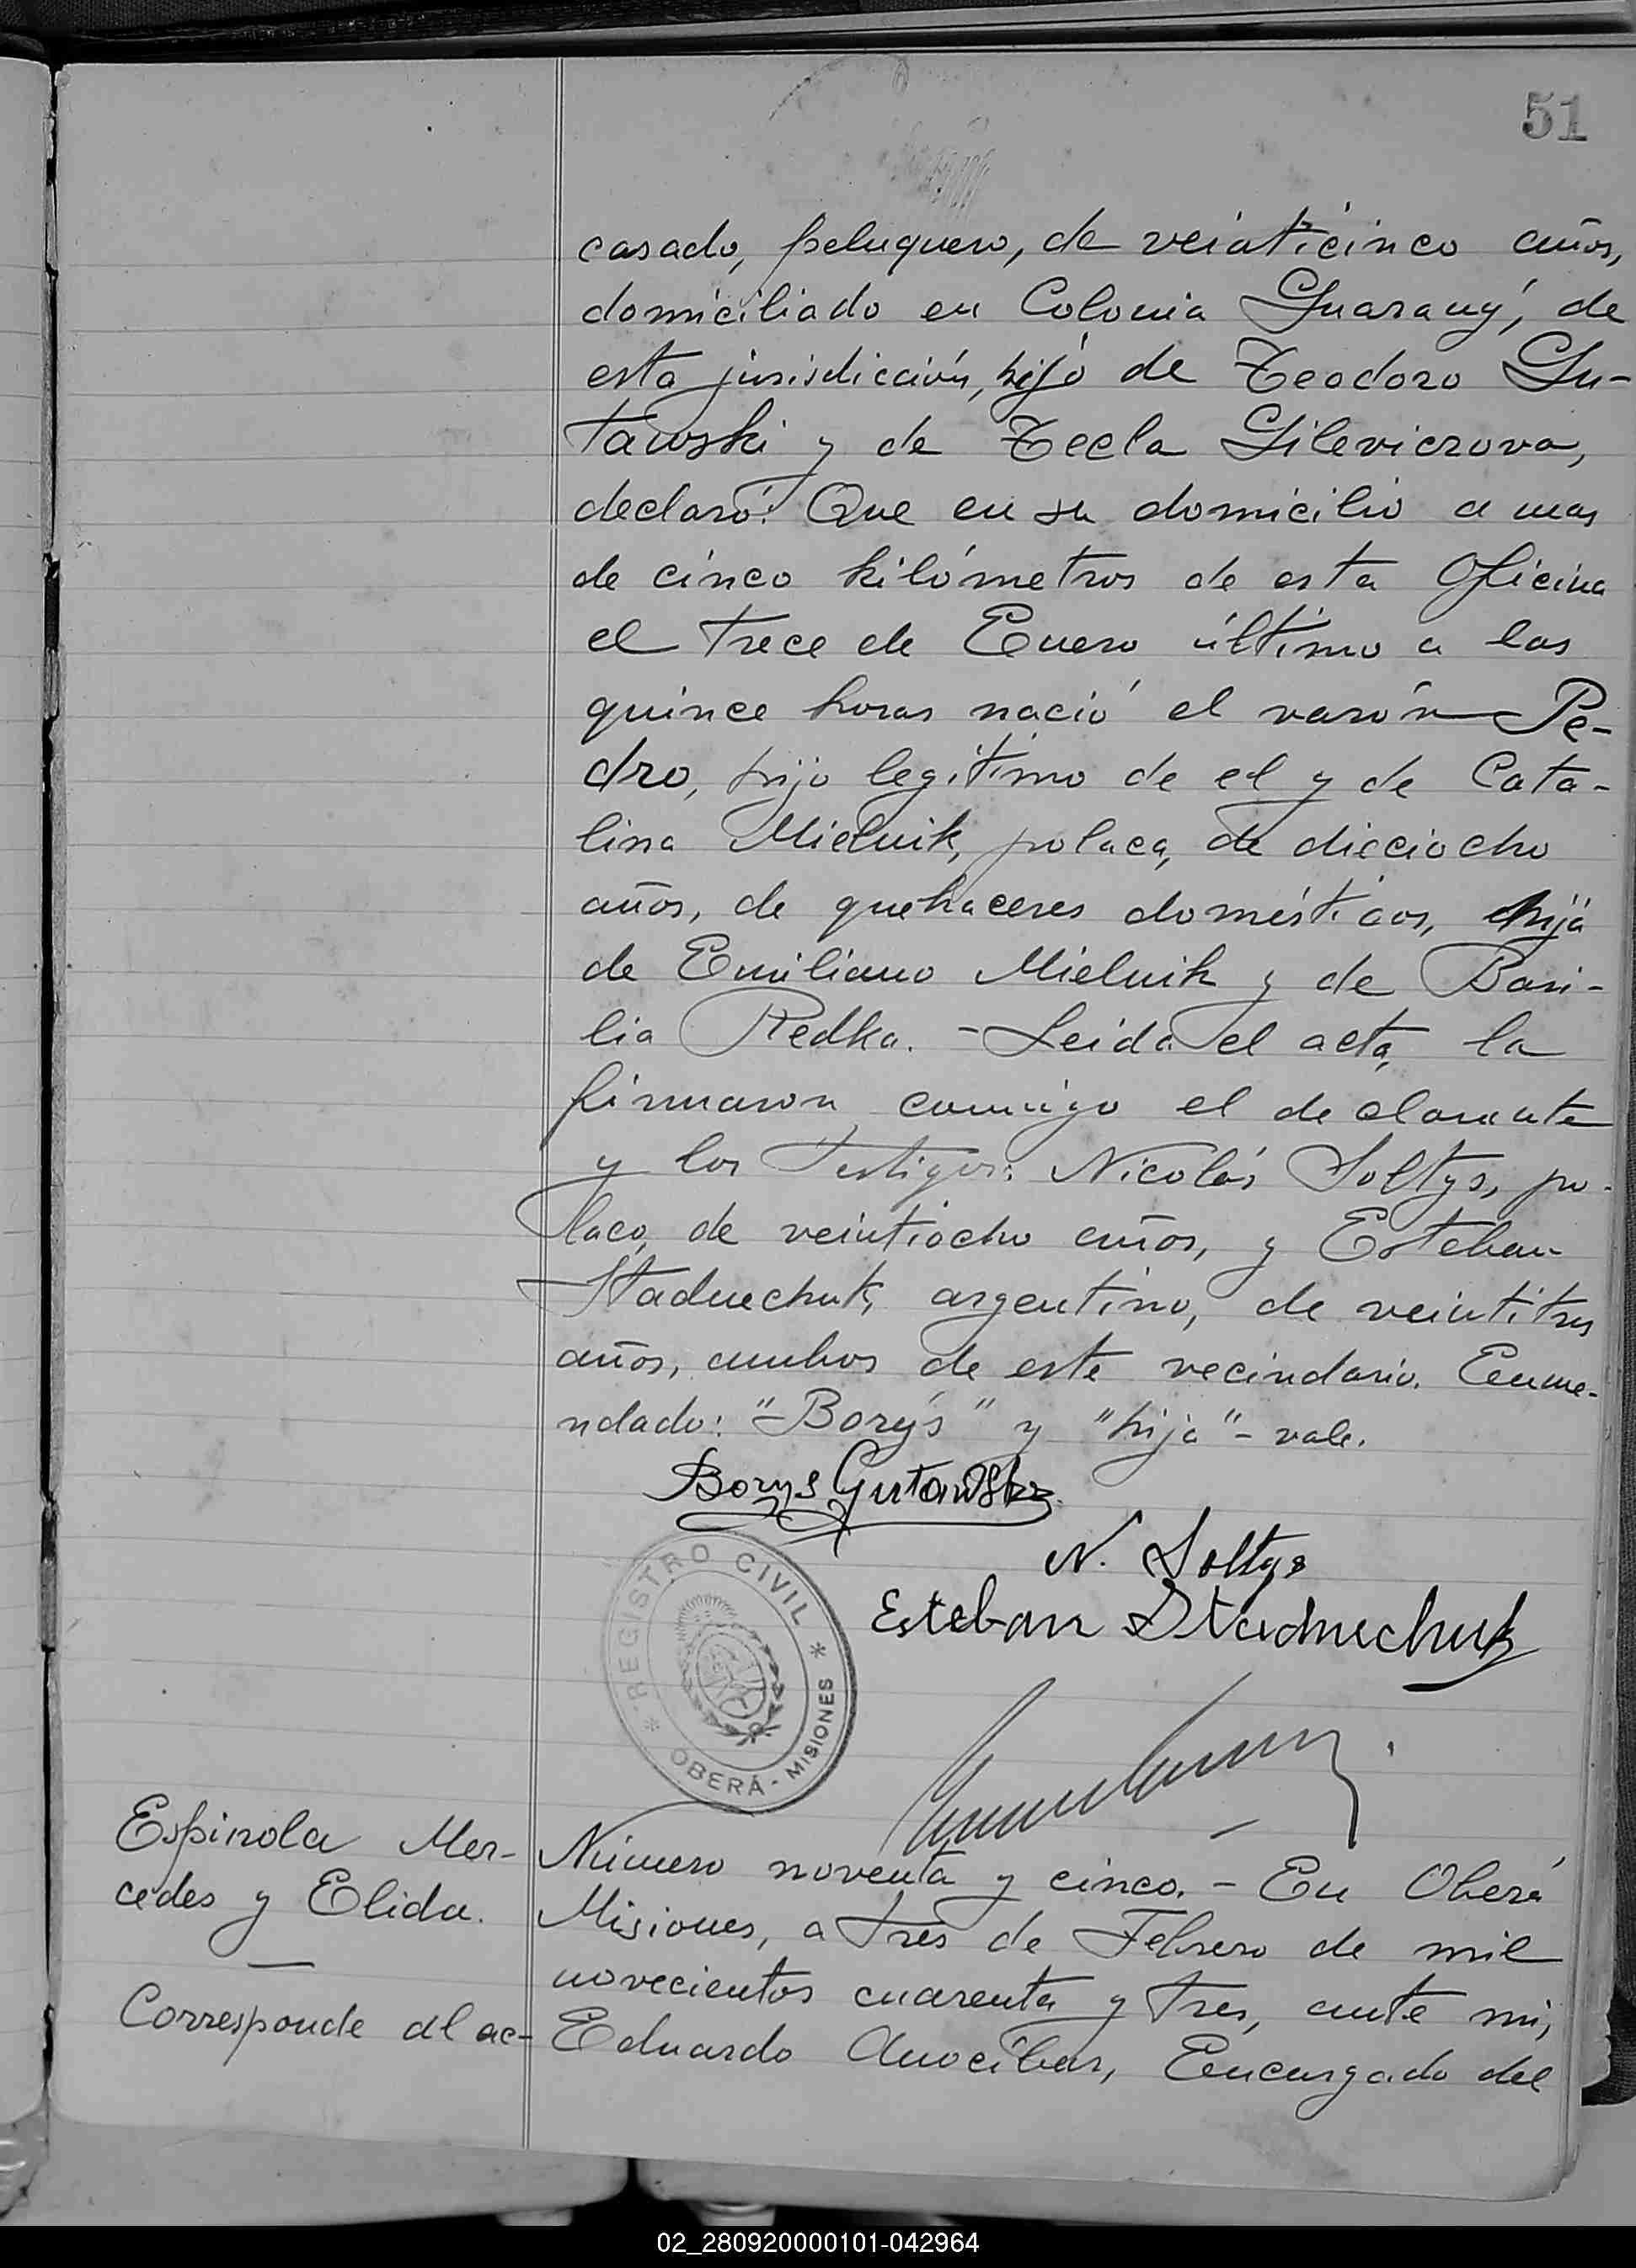 51
casado, peluquero, de veinticinco años,
domiciliado en Colonia Guarany, de
esta jurisdicción, hijo de Teodoro Gu-
tawski y de Tecla Gileviczova,
declaró: Que en su domicilio a mas
de cinco kilómetros de esta Oficina
el trece de Enero último a las
quince horas nació el varón Pe-
dro, hijo legítimo de el y de Cata-
lina Mielnik, polaca, de dieciocho
años, de quehaceres domésticos, hija
de Emiliano Mielnik y de Basi-
lia Redka. - Leida el acta, la
firmaron conmigo el declarante
y los testigos: Nicolás Soltys, po-
laco, de veintiocho años, y Esteban
Stadnechuk, argentino, de veintitres
años, ambos de este vecindario. Enme-
ndado: "Borys" y "hija" - vale.
Borys Gutawski
N. Soltys
Esteban Stadnechuk
* REGISTRO CIVIL *
OBERÁ - MISIONES
Espinola Mer-
cedes y Elida.
Corresponde al ac-
Número noventa y cinco. - En Oberá
Misiones, a tres de Febrero de mil
novecientos cuarenta y tres, ante mi,
Eduardo Anocibar, Encargado del
02_280920000101-042964